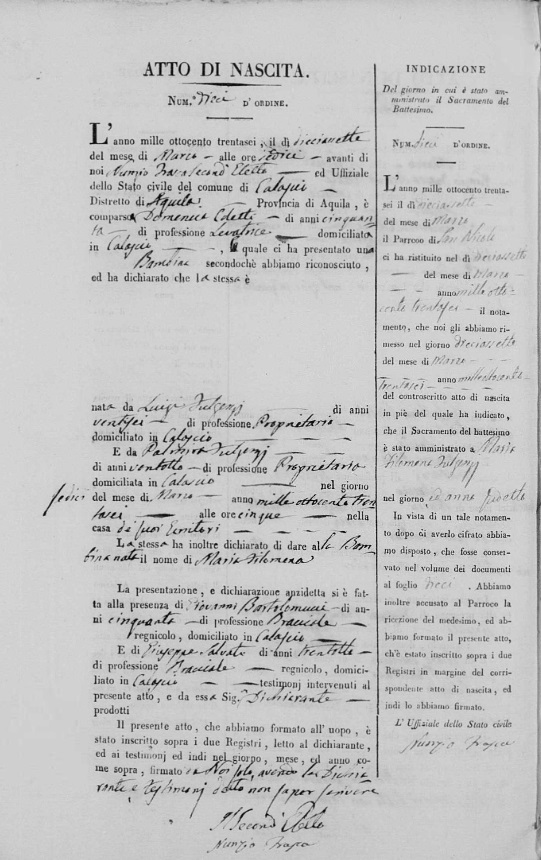 ATTO DI NASCITA.
Num.° dieci D' ORDINE.
L'anno mille ottocento trentasei, il dì diciassette
del mese di Marzo alle ore sedici avanti di
noi Nunzio Frasca Second' Eletto ed Uffiziale
dello Stato civile del comune di Calascio
Distretto di Aquila Provincia di Aquila, è
comparsa Domenica Coletti di anni cinquan
ta di professione Levatrice domiciliata
in Calascio , quale ci ha presentato una
Bambina secondochè abbiamo riconosciuto,
ed ha dichiarato che la stessa è
nata da Luigi Fulgenzj di anni
ventisei di professione Proprietario
domiciliato in Calascio
E da Palmira Fulgenzj
di anni ventotto di professione Proprietaria
domiciliata in Calascio nel giorno
sedici del mese di Marzo anno mille ottocento tren
tasei alle ore cinque nella
casa de suoi Genitori
La stessa ha inoltre dichiarato di dare alla Bam
bina nata il nome di Maria Filomena
La presentazione, e dichiarazione anzidetta si è fat-
ta alla presenza di Giovanni Bartolomucci di an-
ni cinquanta di professione Bracciale
regnicolo, domiciliato in Calascio
E di Giuseppe Salvati di anni trentotto
di professione Bracciale regnicolo, domici-
liato in Calascio testimonj intervenuti al
presente atto, e da essa Sig. Dichiarante
prodotti
Il presente atto, che abbiamo formato all'uopo, è
stato inscritto sopra i due Registri, letto al dichiarante,
ed ai testimonj ed indi nel giorno, mese, ed anno co-
me sopra, firmato da Noi solo, avendo la Dichia
rante e testimonj detto non saper scrivere
Il Second' Eletto
Nunzio Frasca
INDICAZIONE
Del giorno in cui è stato am-
ministrato il Sacramento del
Battesimo.
Num. dieci D' ORDINE.
L'anno mille ottocento trenta-
sei il dì diciassette
del mese di Marzo
il Parroco di San Nicola
ci ha ristituito nel dì diciassette
del mese di Marzo
anno mille otto-
cento trentasei il nota-
mento, che noi gli abbiamo ri-
messo nel giorno diciassette
del mese di Marzo
trentasei anno mille ottocento
del controscritto atto di nascita
in piè del quale ha indicato,
che il Sacramento del battesimo
è stato amministrato a Maria
Filomena Fulgenzj
nel giorno ed anno
In vista di un tale notamento
dopo di averlo cifrato abbiamo
disposto, che fosse conser-
vato nel volume dei documenti
al foglio dieci . Abbiamo
inoltre accusato al Parroco la
ricezione del medesimo, ed ab-
biamo formato il presente atto,
ch'è estato inscritto sopra i due
Registri in margine del corri-
spondente atto di nascita, ed
indi lo abbiamo firmato.
L' Uffiziale dello Stato civile
Nunzio Frasca